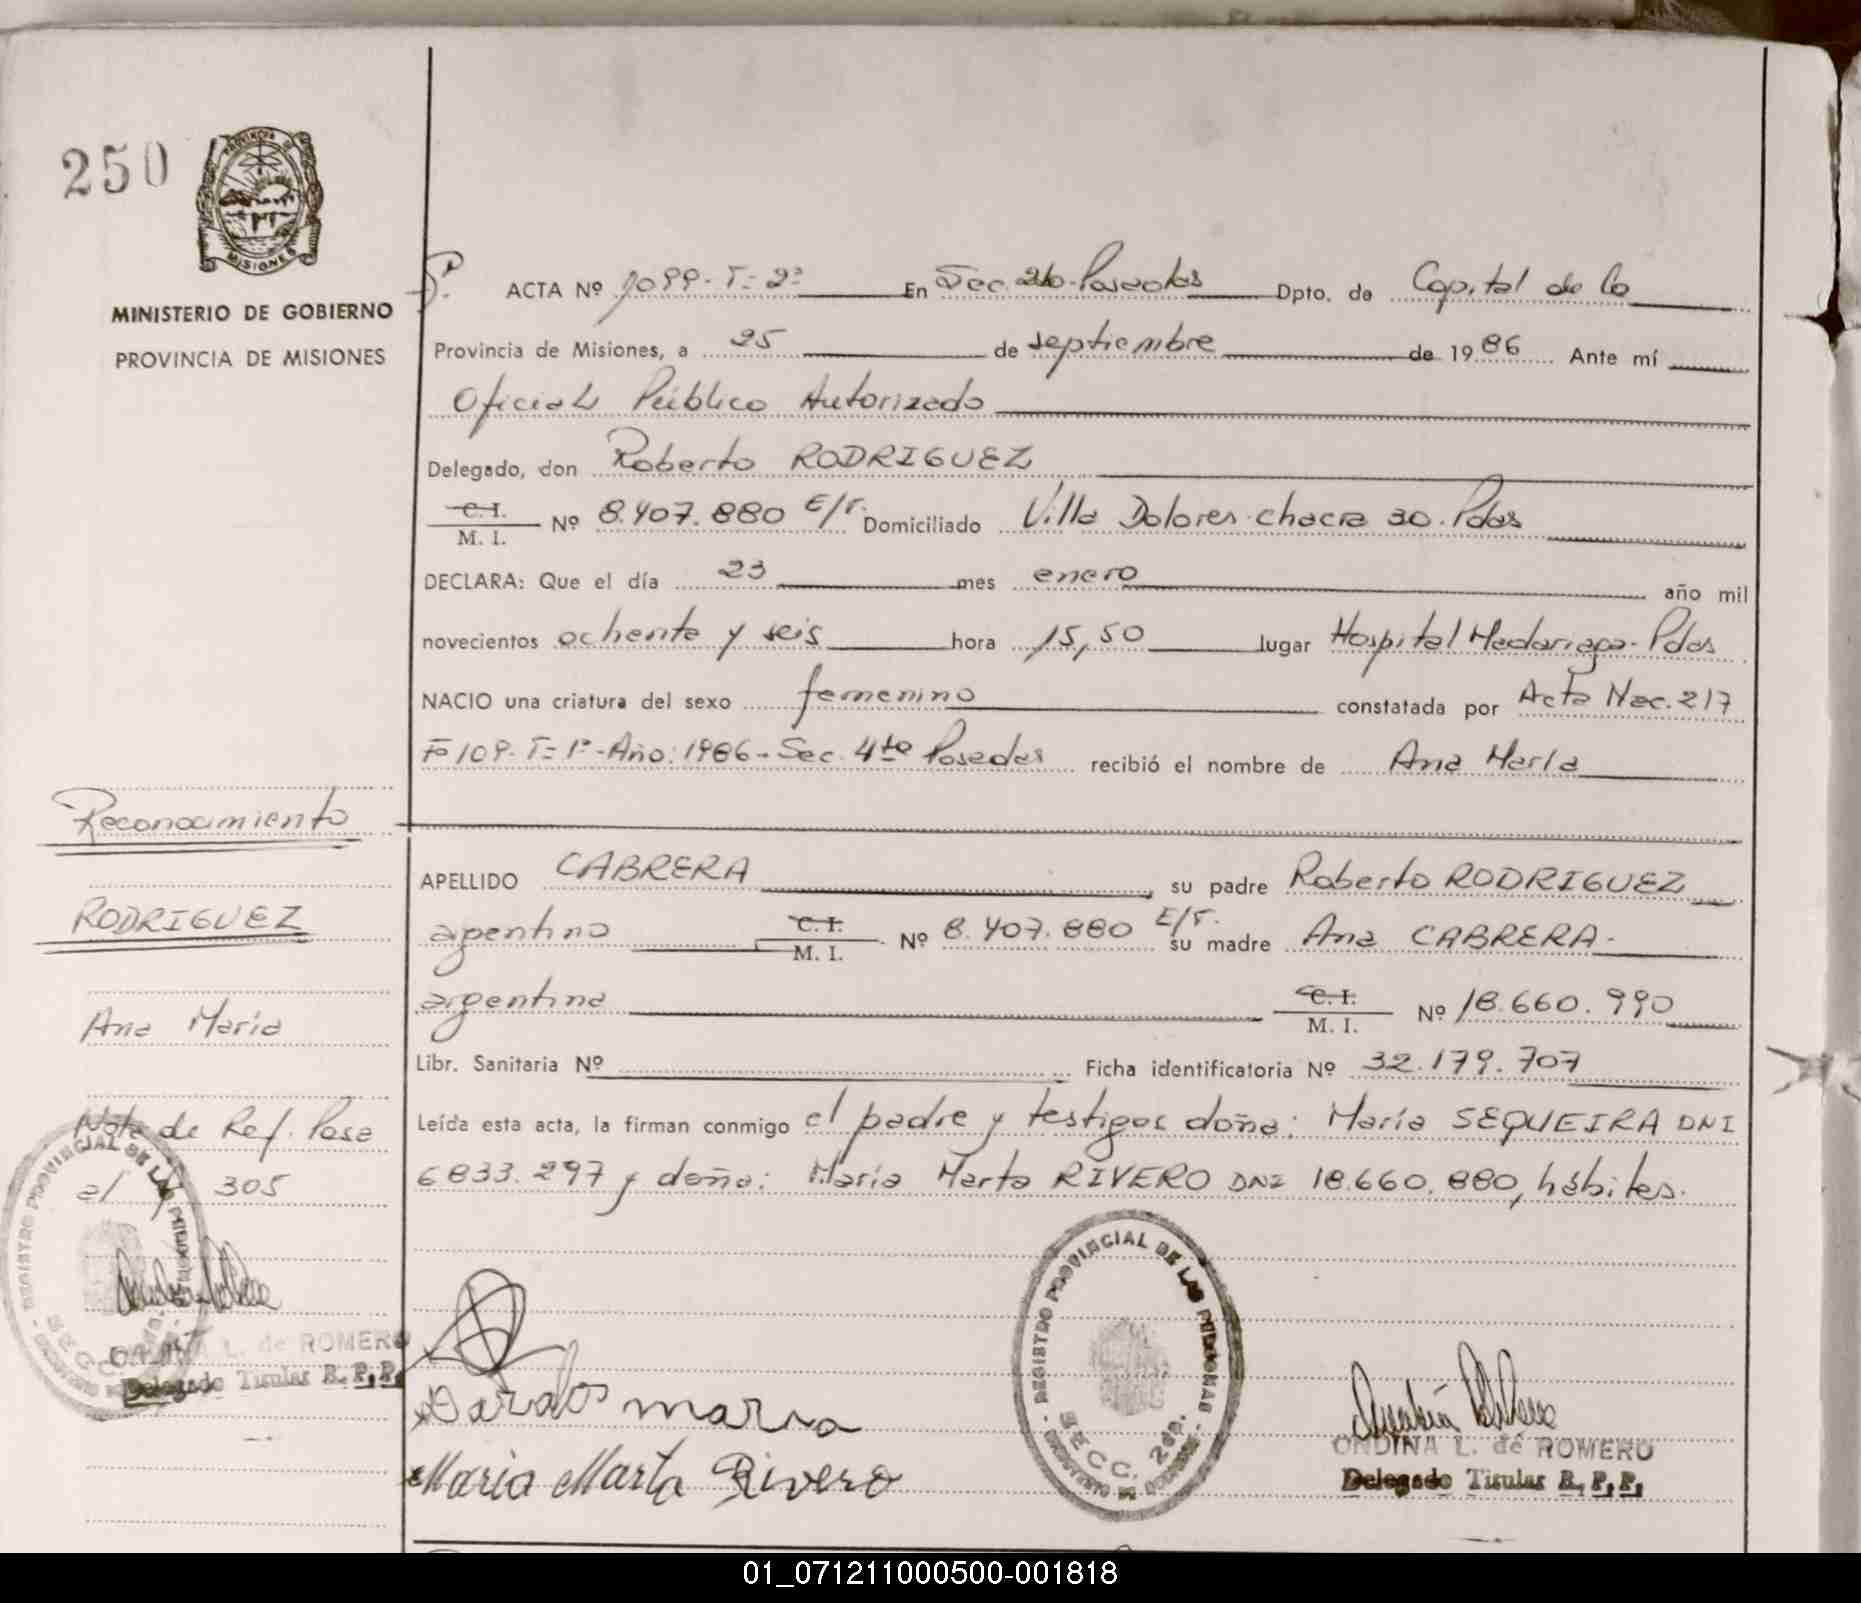 250
PROVINCIA DE
MISIONES
MINISTERIO DE GOBIERNO
PROVINCIA DE MISIONES
ACTA Nº 1099-T=2º En Sec. 2da Posadas Dpto. de Capital de la
Provincia de Misiones, a 25 de septiembre de 1986 Ante mí
Oficial Público Autorizado
Delegado, don Roberto RODRIGUEZ
C. I.
M. I. Nº 8.407.880 E/T. Domiciliado Villa Dolores-chacra 30. Pdas
DECLARA: Que el día 23 mes enero año mil
novecientos ochenta y seis hora 15,50 lugar Hospital Madariaga-Pdas
NACIO una criatura del sexo femenino constatada por Acta Nac. 217
Fº 109-T=1º-Año: 1986-Sec. 4ta Posadas recibió el nombre de Ana María
APELLIDO CABRERA su padre Roberto RODRIGUEZ
argentino C. I. M. I. Nº 8.407.880 E/T. su madre Ana CABRERA-
argentina C. I. M. I. Nº 18.660.990
Libr. Sanitaria Nº Ficha identificatoria Nº 32.179.707
Leída esta acta, la firman conmigo el padre y testigos doña: María SEQUEIRA DNI
6833.297 y doña: María Marta RIVERO DNI 18.660.880, hábiles.
Reconocimiento
RODRIGUEZ
Ana María
Nota de Ref. Pasa
al 305
REGISTRO PROVINCIAL DE LAS PERSONAS
SECC. 2da.
ONDINA L. de ROMERO
Delegado Titular R. P. P.
maria
Maria Marta Rivero
REGISTRO PROVINCIAL DE LAS PERSONAS
SECC. 2da.
MINISTERIO DE GOBIERNO
ONDINA L. de ROMERO
Delegado Titular R. P. P.
01_071211000500-001818